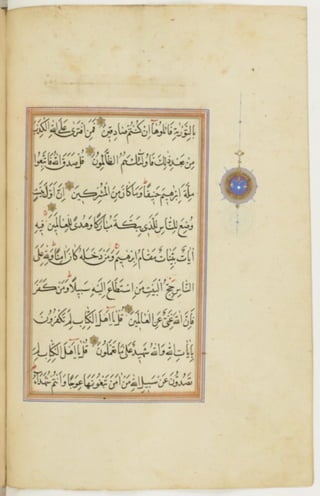 بِالتَّوْرٰيةِ فَاتْلُوهَا اِنْ كُنْتُمْ صَادِقِينَ فَمَنِ افْتَرٰى عَلَى اللّٰهِ الْكَذِبَ
مِنْ بَعْدِ ذٰلِكَ فَاُولٰئِكَ هُمُ الظَّالِمُونَ قُلْ صَدَقَ اللّٰهُ فَاتَّبِعُوا
مِلَّةَ اِبْرٰهِيمَ حَنِيفًا وَمَا كَانَ مِنَ الْمُشْرِكِينَ اِنَّ اَوَّلَ بَيْتٍ
وُضِعَ لِلنَّاسِ لَلَّذِى بِبَكَّةَ مُبَارَكًا وَهُدًى لِلْعَالَمِينَ فِيهِ
اٰيَاتٌ بَيِّنَاتٌ مَقَامُ اِبْرٰهِيمَ وَمَنْ دَخَلَهُ كَانَ اٰمِنًا وَلِلّٰهِ عَلَى
النَّاسِ حِجُّ الْبَيْتِ مَنِ اسْتَطَاعَ اِلَيْهِ سَبِيلًا وَمَنْ كَفَرَ
فَاِنَّ اللّٰهَ غَنِىٌّ عَنِ الْعَالَمِينَ قُلْ يَا اَهْلَ الْكِتَابِ لِمَ تَكْفُرُونَ
بِاٰيَاتِ اللّٰهِ وَاللّٰهُ شَهِيدٌ عَلٰى مَا تَعْمَلُونَ قُلْ يَا اَهْلَ الْكِتَابِ لِمَ
تَصُدُّونَ عَنْ سَبِيلِ اللّٰهِ مَنْ اٰمَنَ تَبْغُونَهَا عِوَجًا وَاَنْتُمْ شُهَدَاءُ